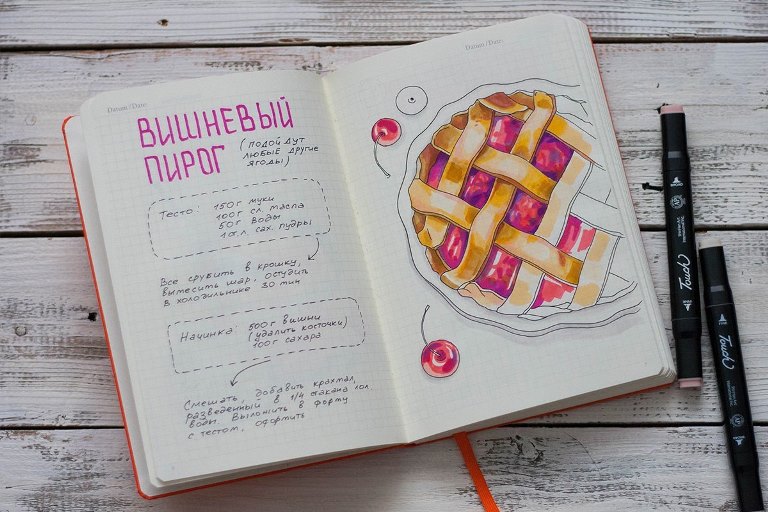 Datum / Date:
ВИШНЕВЫЙ
ПИРОГ
(ПОДОЙДУТ
ЛЮБЫЕ ДРУГИЕ
ЯГОДЫ)
Тесто: 150г муки
100г сл. масла
50г воды
1ст.л. сах. пудры
Все срубить в крошку,
вымесить шар, остудить
в холодильнике 30 мин
Начинка: 500г вишни
(удалить косточки)
100г сахара
Смешать, добавить крахмал,
разведенный в 1/4 стакана хол.
воды. Выложить в форму
с тестом, оформить
Datum / Date:
Touch
Touch